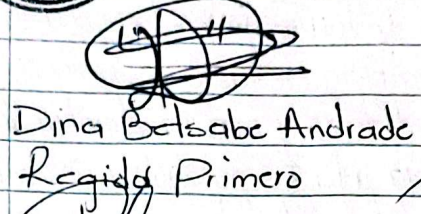 Dina Betsabe Andrade
Regido Primero